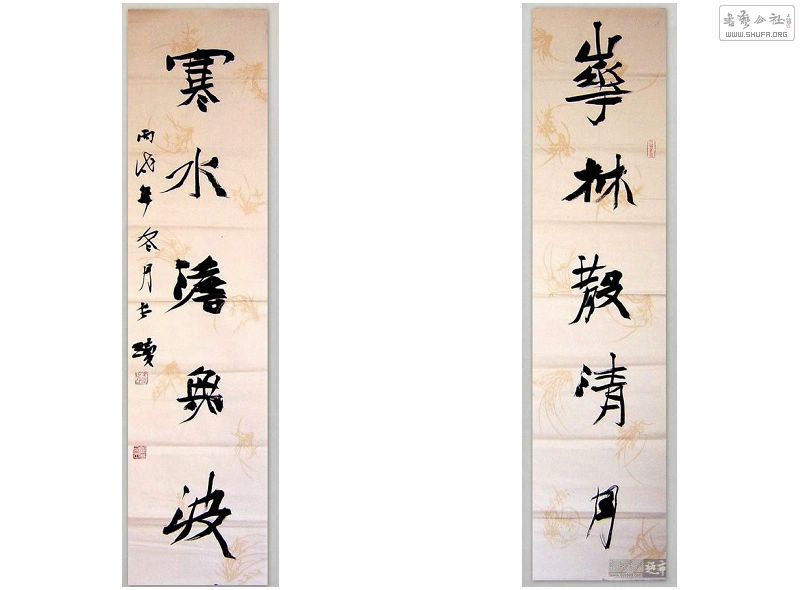 華林散清月
寒水澹無波
丙戌年冬月
书艺公社
WWW.SHUFA.ORG